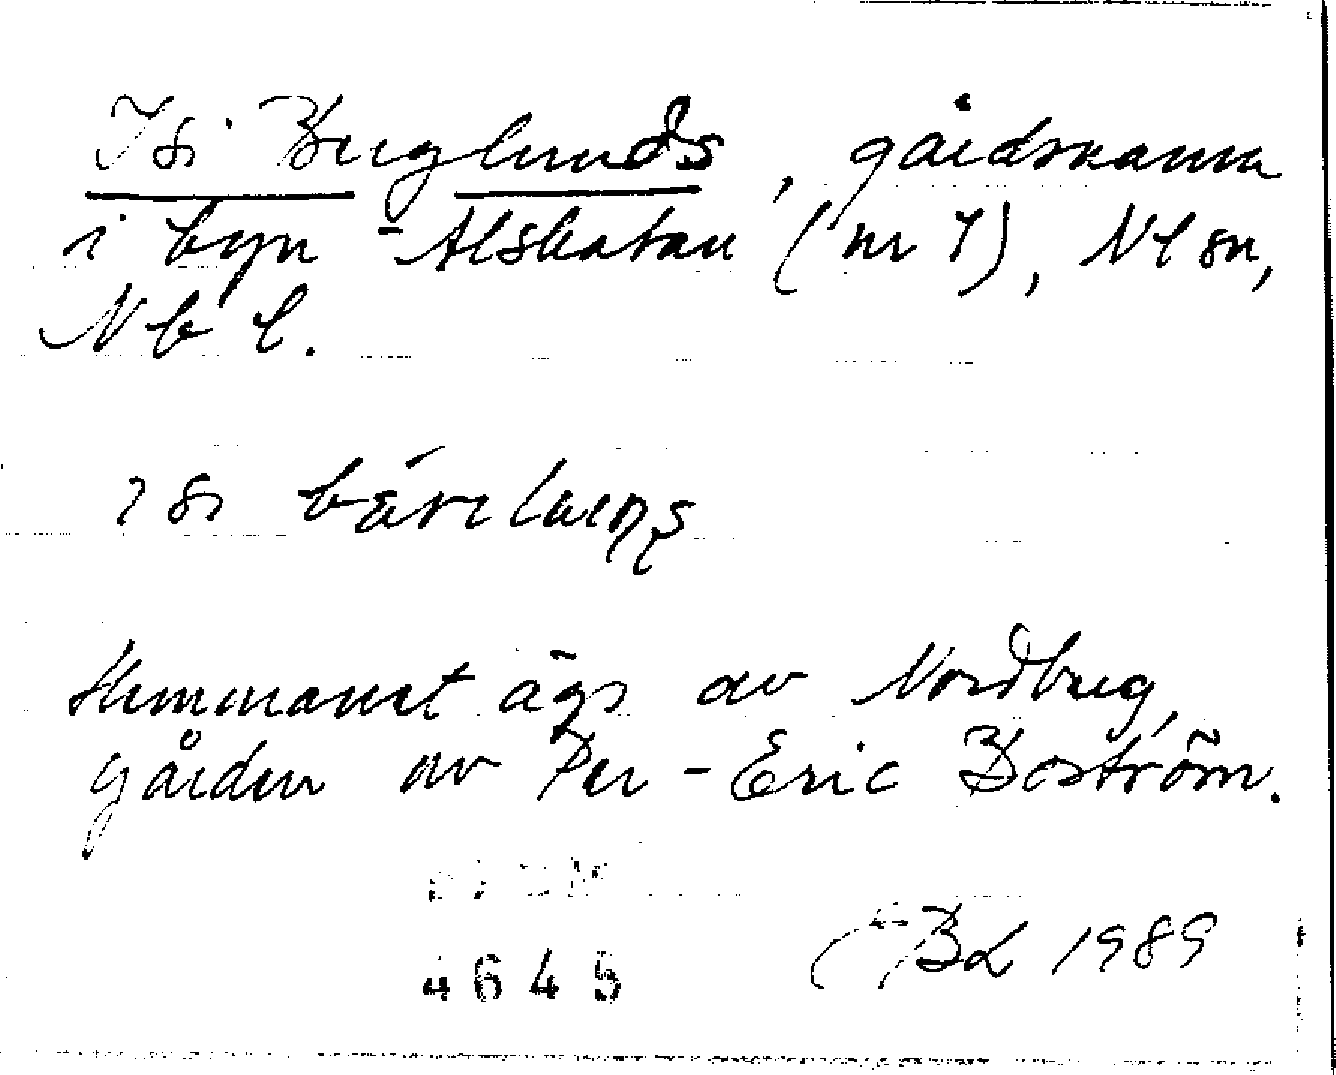 Isi Berglunds, gårdsnamn
i byn Alskatan (nr 7), Nl sn,
Nb l.
Hemmanet ägs av Nordberg,
gården av Per-Eric Boström.
4645
BL 1989